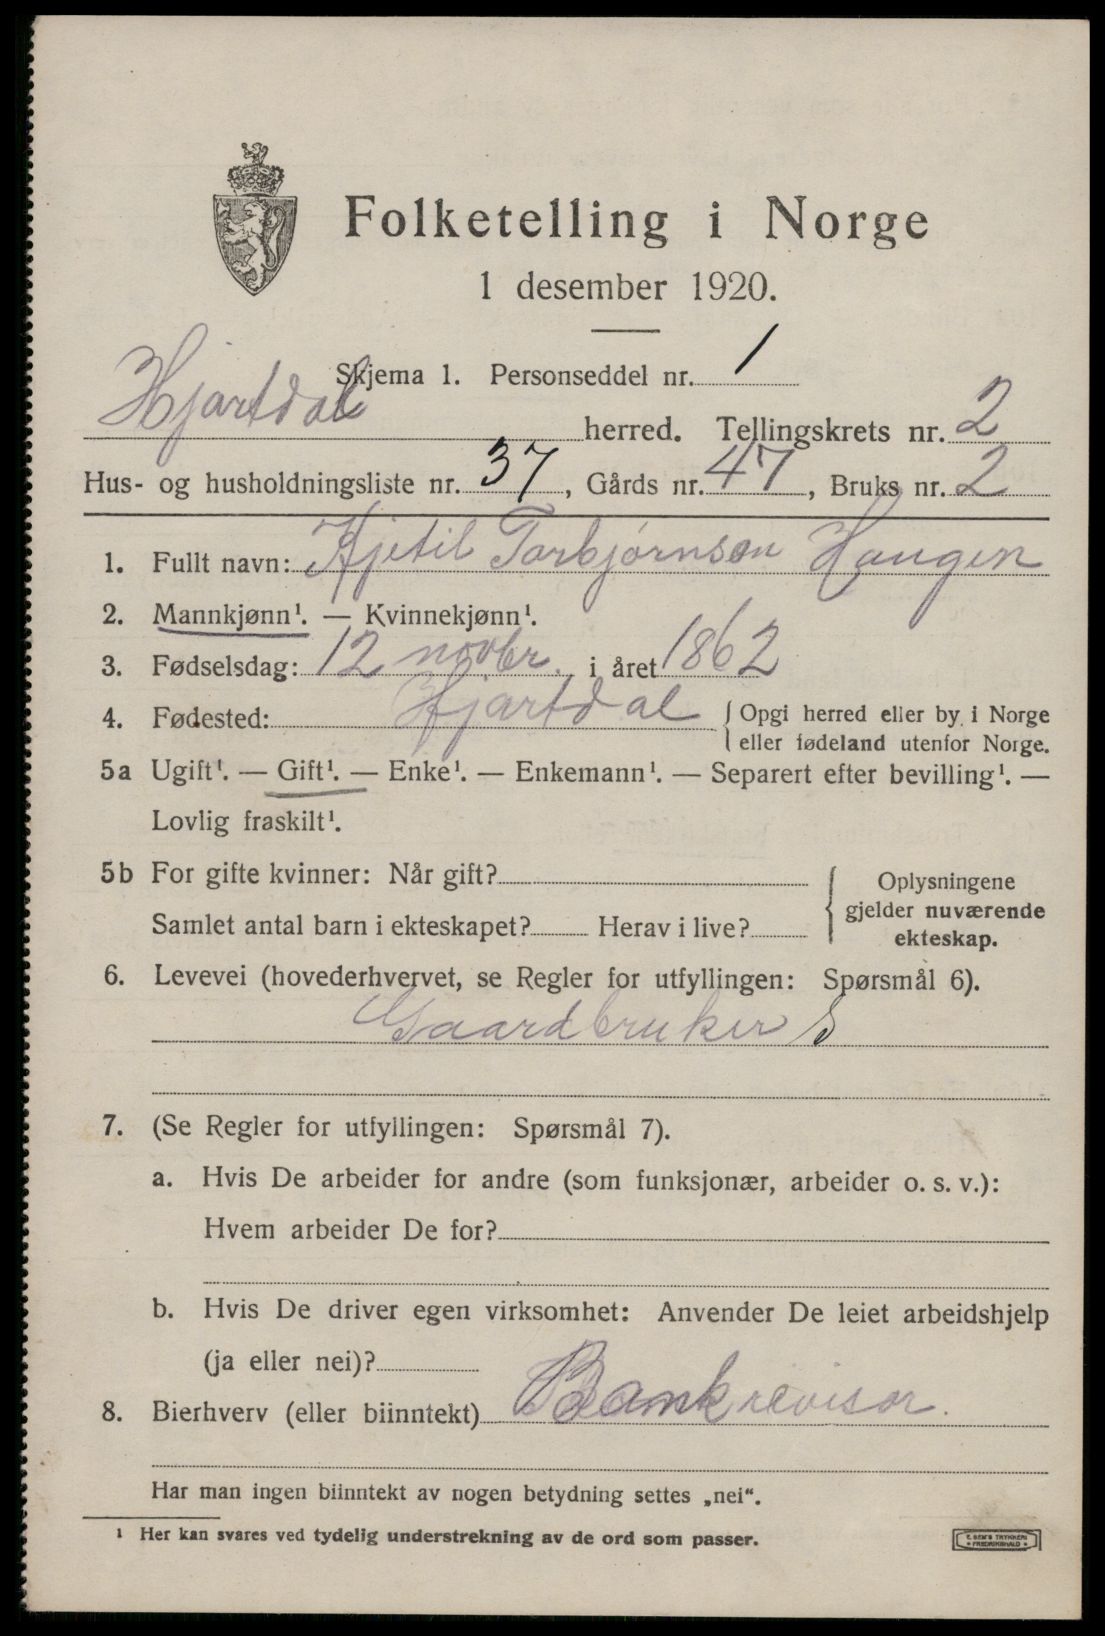 Folketelling i Norge
1 desember 1920.
Skjema 1. Personseddel nr. 1
Hjartdal herred. Tellingskrets nr. 2
Hus- og husholdningsliste nr. 37, Gårds nr. 47, Bruks nr. 2
1. Fullt navn: Kjetil Torbjørnson Haugen
2. Mannkjønn¹. — Kvinnekjønn¹.
3. Fødselsdag: 12 novbr. i året 1862
4. Fødested: Hjartdal { Opgi herred eller by i Norge
eller fødeland utenfor Norge.
5a Ugift¹. — Gift¹. — Enke¹. — Enkemann¹. — Separert efter bevilling¹. —
Lovlig fraskilt¹.
5b For gifte kvinner: Når gift?
Samlet antal barn i ekteskapet? Herav i live?
{ Oplysningene
gjelder nuværende
ekteskap.
6. Levevei (hovederhvervet, se Regler for utfyllingen: Spørsmål 6).
Gaardbruker S
7. (Se Regler for utfyllingen: Spørsmål 7).
a. Hvis De arbeider for andre (som funksjonær, arbeider o. s. v.):
Hvem arbeider De for?
b. Hvis De driver egen virksomhet: Anvender De leiet arbeidshjelp
(ja eller nei)?
8. Bierhverv (eller biinntekt) Bankrevisor.
Har man ingen biinntekt av nogen betydning settes „nei“.
¹ Her kan svares ved tydelig understrekning av de ord som passer.
E. SEM'S TRYKKERI
• FREDRIKSHALD •